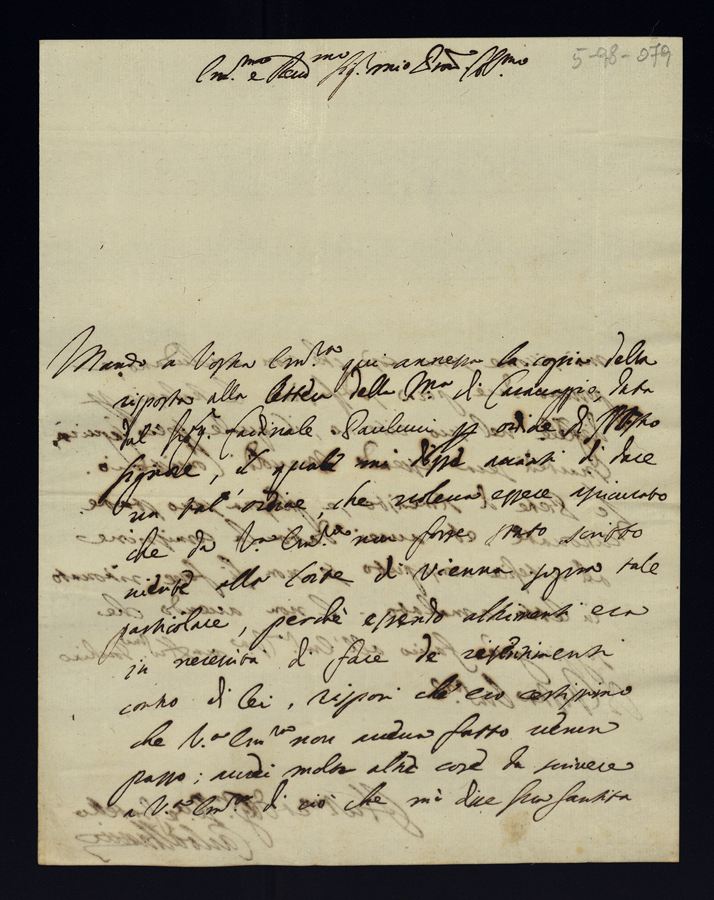 5-98-079
Em.mo e Rev.mo Sig. mio Pron Col.mo
Mando a Vostra Em.za qui annessa la copia della
risposta alla lettera della M.sa di Caravaggio, data
dal Sig.r Cardinale Paulucci p ordine di Nostro
Signore, il quale mi disse avanti di dare
un tal' ordine, che voleva essere assicurato
che da V.a Em.za non fosse stato scritto
niente alla Corte di Vienna sopra tale
particolare, perchè essendo altrimenti era
in necessità di fare de risentimenti
contro di lei, risposi che ero certissimo
che V.a Em.za non aveva fatto verun
passo; avrei molte altre cose da scrivere
a V.ra Em.za di ciò che mi dice Sua Santità